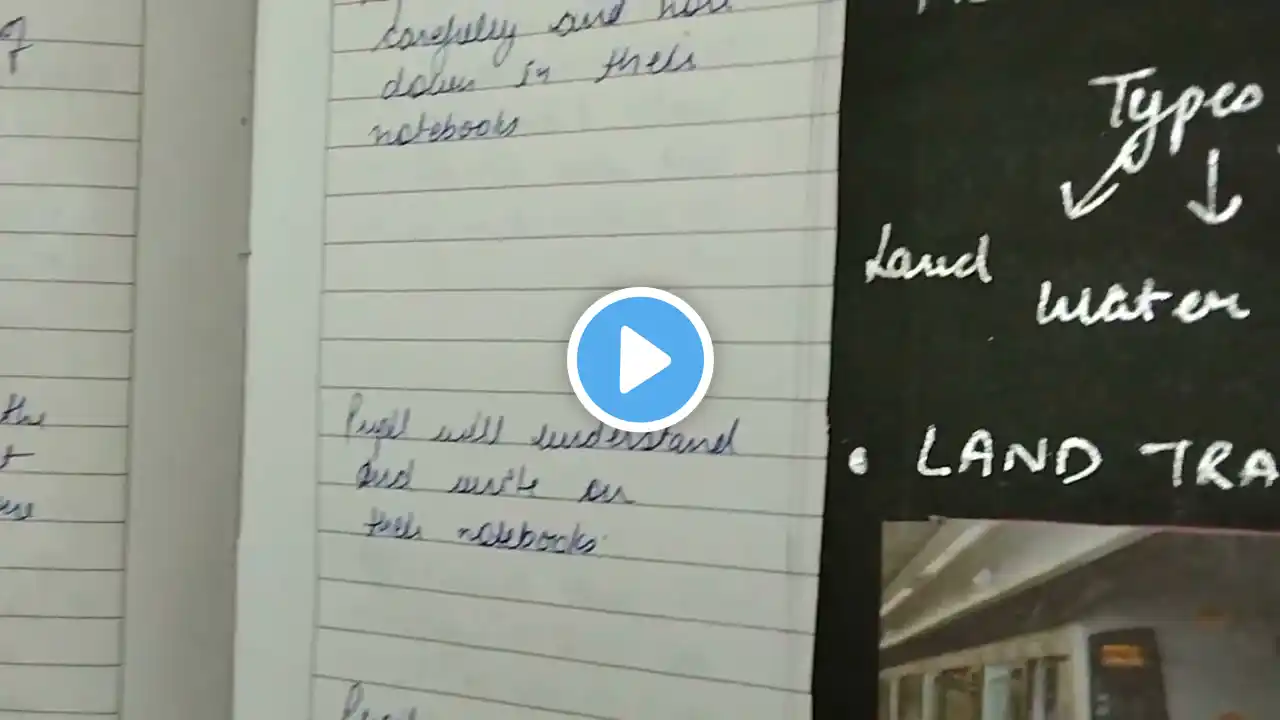 the
carefully and note
down in their
notebooks
Pupil will understand
and write on
their notebooks.
Types
Land
Water
• LAND TRA